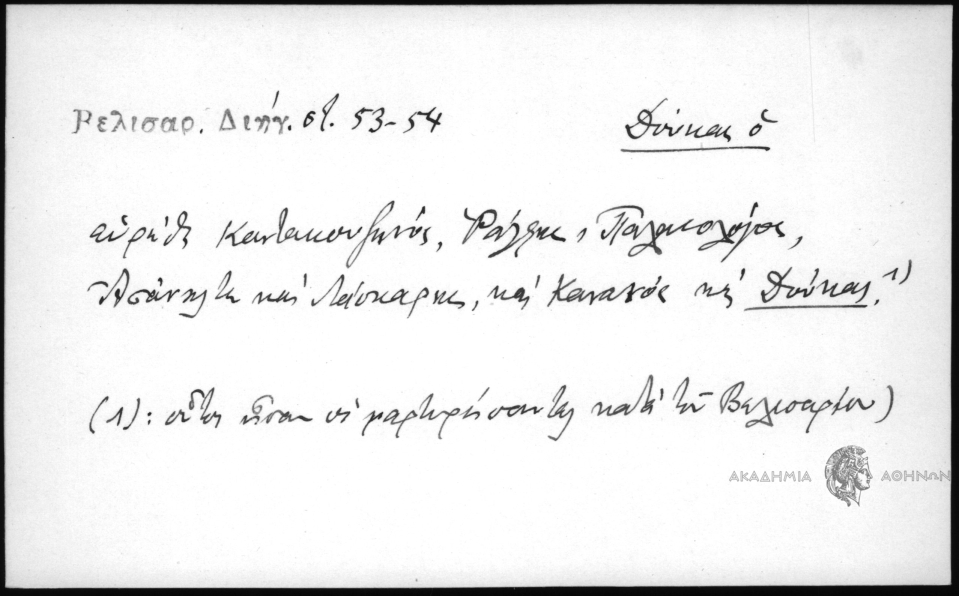 Βελισαρ. Διήγ. στ. 53-54
Δούκας ὁ
εὑρέθη Καντακουζηνός, Ράλλης, Παλαιολόγος,
καὶ Λάσκαρης, καὶ Κανανός καὶ Δούκας.¹⁾
(1): οὗτοι ἦσαν οἱ μαρτυρήσαντες κατὰ τοῦ Βελισαρίου)
ΑΚΑΔΗΜΙΑ ΑΘΗΝΩΝ